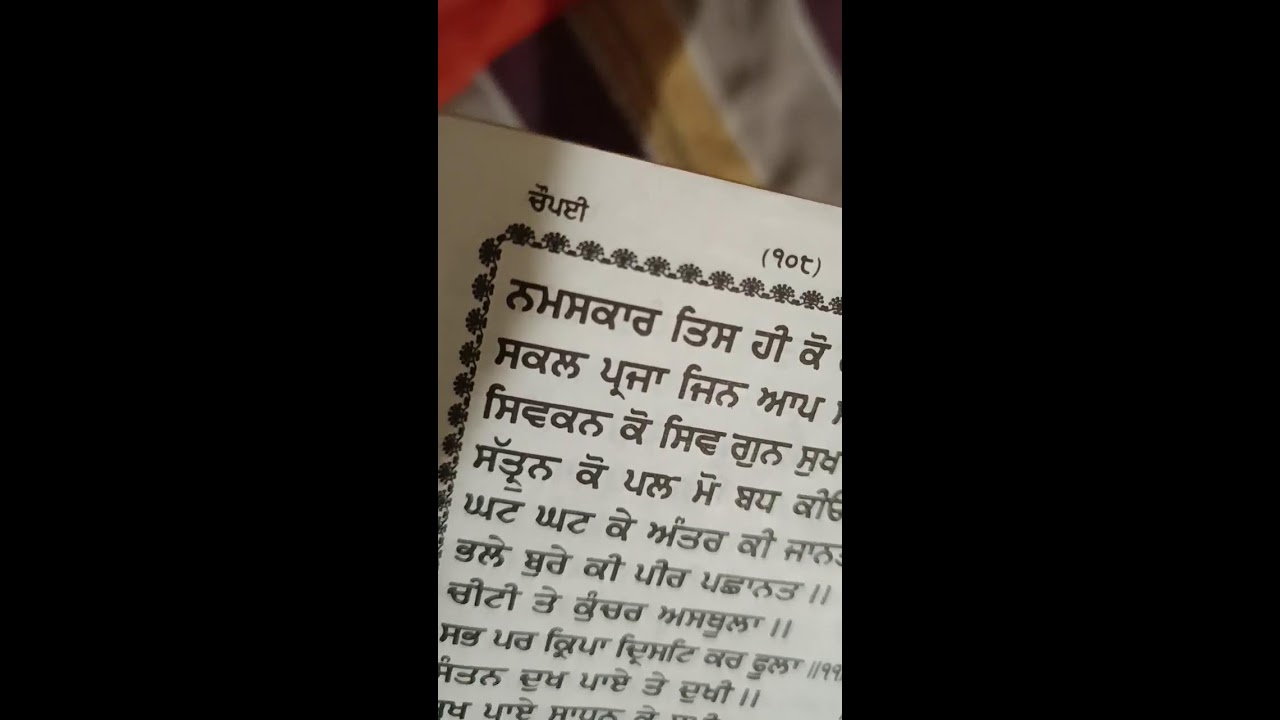 ਚੌਪਈ
(੧੦੯)
ਨਮਸਕਾਰ ਤਿਸ ਹੀ ਕੋ
ਸਕਲ ਪ੍ਰਜਾ ਜਿਨ ਆਪ
ਸਿਵਕਨ ਕੋ ਸਿਵ ਗੁਨ ਸੁਖ
ਸੱਤ੍ਰੁਨ ਕੋ ਪਲ ਮੋ ਬਧ ਕੀਓ
ਘਟ ਘਟ ਕੇ ਅੰਤਰ ਕੀ ਜਾਨਤ
ਭਲੇ ਬੁਰੇ ਕੀ ਪੀਰ ਪਛਾਨਤ ॥
ਚੀਟੀ ਤੇ ਕੁੰਚਰ ਅਸਥੂਲਾ ॥
ਸਭ ਪਰ ਕ੍ਰਿਪਾ ਦ੍ਰਿਸਟਿ ਕਰ ਫੂਲਾ ॥੧੧
ਸੰਤਨ ਦੁਖ ਪਾਏ ਤੇ ਦੁਖੀ ॥
ਸੁਖ ਪਾਏ ਸਾਧਨ ਕੇ